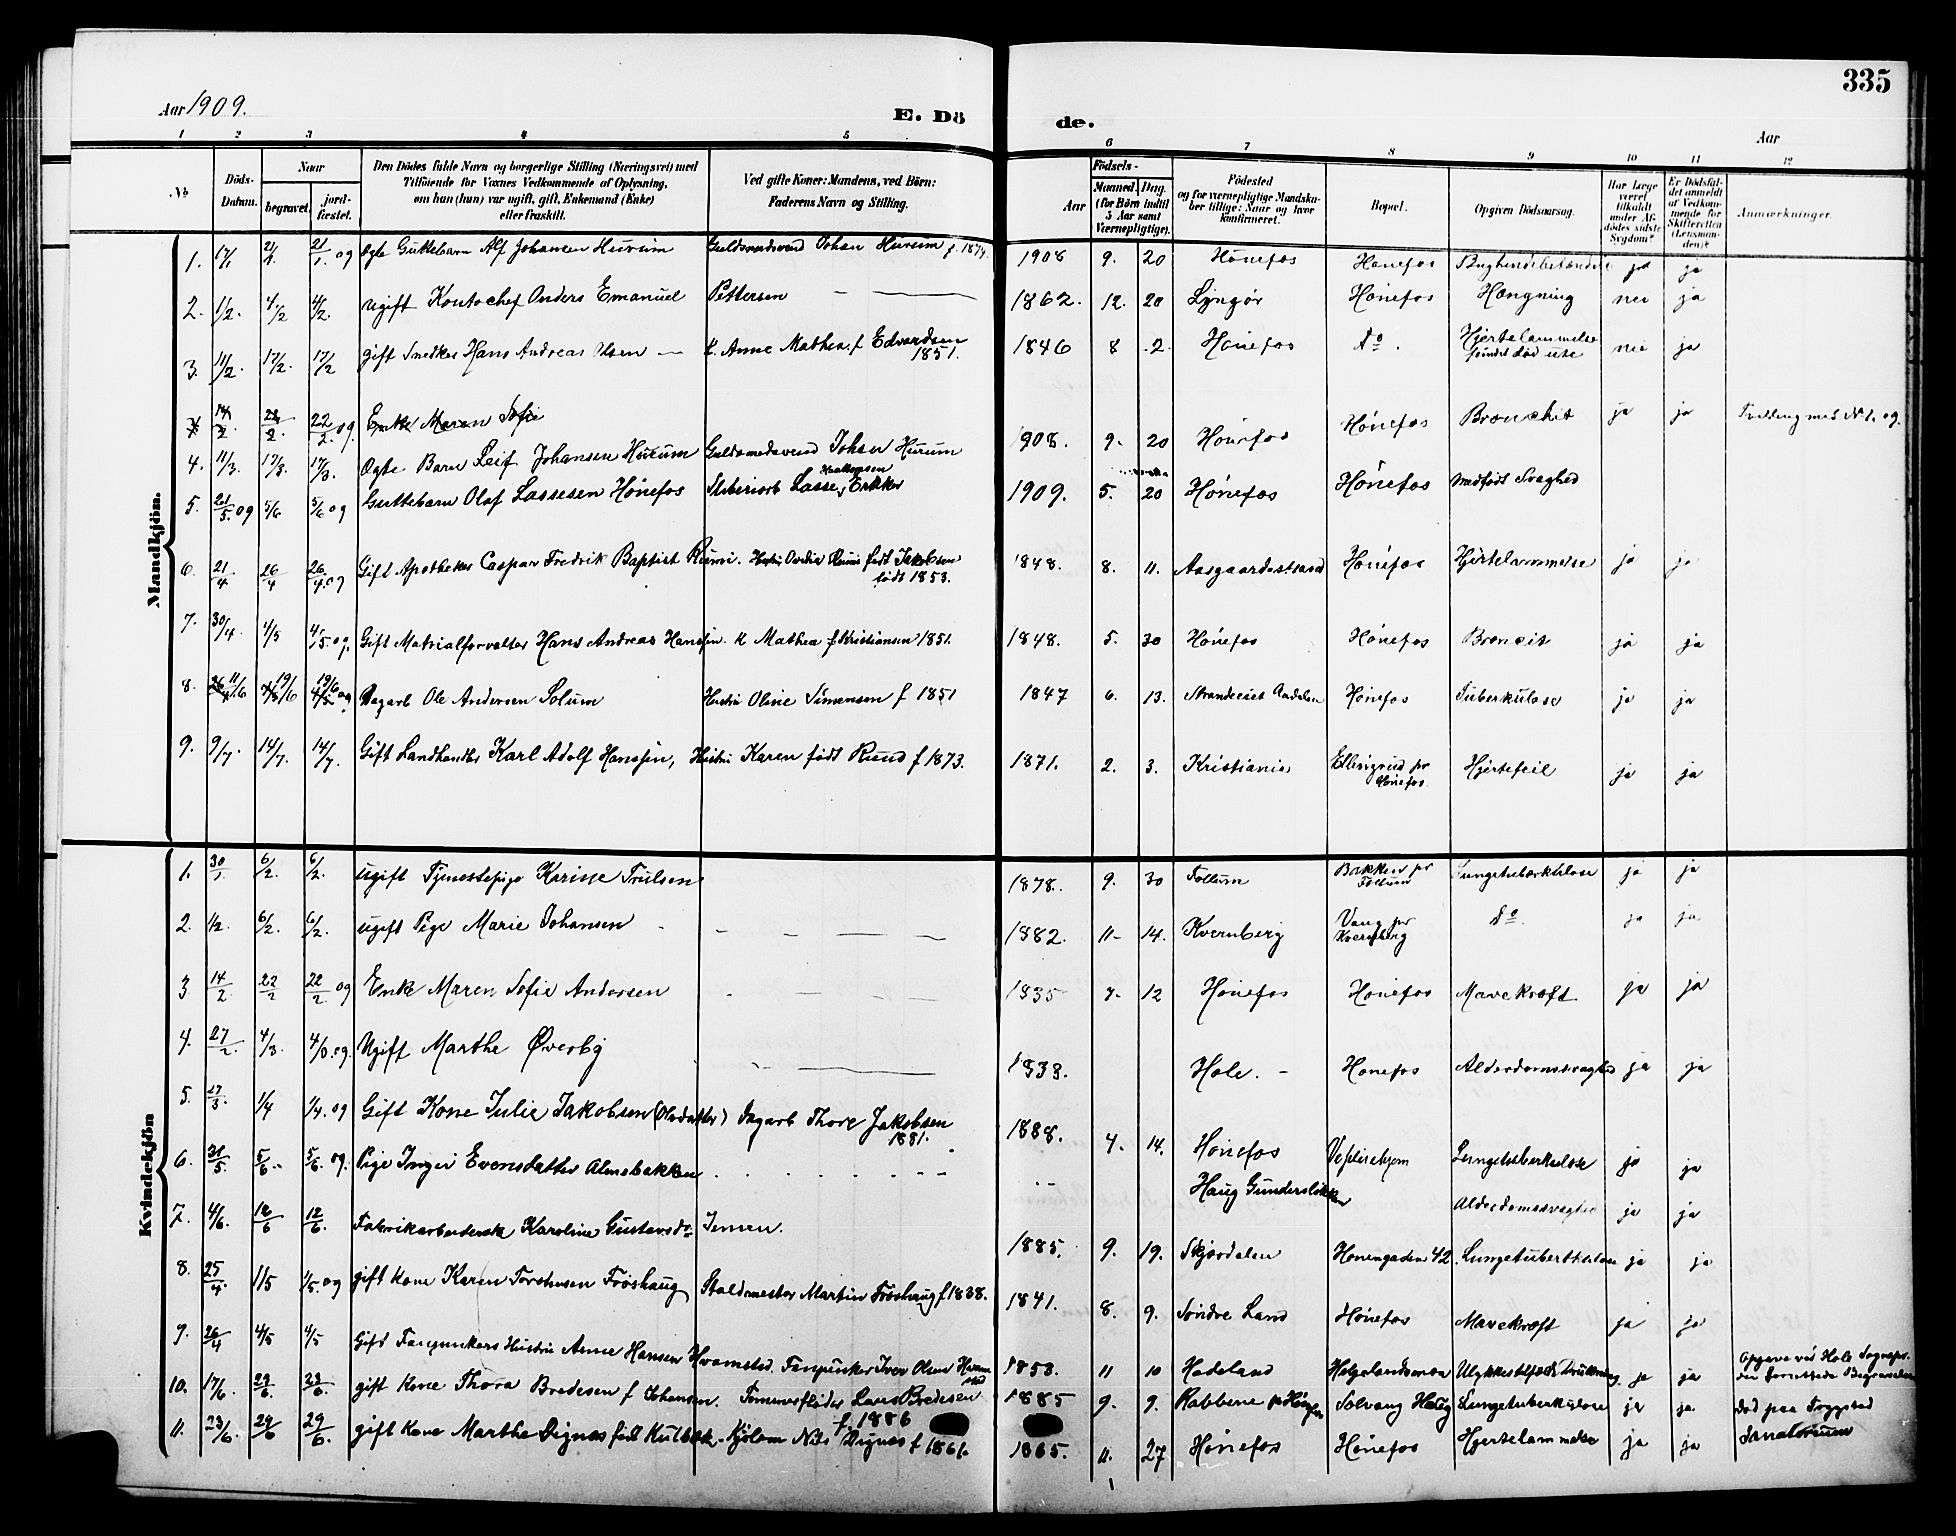 335
Aar 1909.
E. Dö
de.
Aar
1 2 3 4 5 6 7 8 9 10 11 12
No
Döds-
Datum.
Naar
begravet.
jord-
fæstet.
Den Dödes fulde Navn og borgerlige Stilling (Næringsvei) med
Tilföiende for Voxnes Vedkommende af Oplysning,
om han (hun) var ugift, gift, Enkemand (Enke)
eller fraskilt.
Ved gifte Koner: Mandens, ved Börn:
Faderens Navn og Stilling.
Födsels-
Aar
Maaned.
Dag.
(for Börn indtil
5 Aar samt
Værnepligtige).
Födested
og for værnepligtige Mandska-
ber tillige: Naar og hvor
konfirmeret.
Bopæl.
Opgiven Dödsaarsag.
Har Læge
været
tilkaldt
under Af-
dödes sidste
Sygdom?
Er Dödsfal-
det anmeldt
af Vedkom-
mende for
Skifteretten
(Lensman-
den)?
Anmærkninger.
Mandkjön.
1. 17/1 21/1 21/1 og Ægte Guttebarn Alf Johansen Hurum Guldsmedsvend Johan Hurum f. 1874. 1908 9. 20 Hønefos Hønefos ja ja
2. 1/2. 4/2 4/2. ugift Kontochef Anders Emanuel Pettersen 1862. 12. 20 Lyngør Hønefos Hængning nei ja
3. 11/2. 17/2. 17/2 gift Snedker Hans Andreas Olsen — K. Anne Mathea f Edvardsen 1851. 1846 8 2. Hønefos do. Hjertelammelse fundet død ute nei ja
14/2. 22/2. 22/2. og Enke Maren Sofie
4. 11/3. 17/3. 17/3. Ægte Barn Leif Johansen Hurum Guldsmedsvend Johan Hurum 1908. 9. 20 Hønefos Hønefos Bronchit ja ja Tvilling med No 1. og.
5. 21/5. og 5/6 5/6 og Guttebarn Olaf Lassesen Hønefos Lasse 1909. 5. 20 Hønefos Hønefos medfødt Svaghed
6. 21/4 26/4 26/4 og Gift Apotheker Caspar Fredrik Baptist Riumi. født Jakobsen født 1853. 1848. 8. 11. Aasgaardestrand Hønefos Hjertelammelse ja ja
7. 30/4 4/5 4/5. og. Gift Matrialforvalter Hans Andreas Hanssen. K Mathea f Kristiansen 1851. 1848. 5. 30 Hønefos Hønefos Broncit ja ja
8. 11/6 19/6 19/6 og Dagarb Ole Andersen Solum Hustru Oline Simensen f 1851 1847 6. 13. Aadalen Hønefos Tuberkulose ja ja
9. 9/7. 14/7. 14/7. Gift Landhandler Karl Adolf Hanssen, Hustru Karen født Ruud f 1873. 1871. 2. 3. Kristiania pr Hønefos. Hjertefeil ja ja
Kvindekjön
1. 30/1. 6/2. 6/2. ugift Tjenestepige Karine Trulsen 1878. 9. 30 Follum Bakken pr Follum Lungetuberkulose ja ja
2. 1/2. 6/2. 6/2. ugift Pige Marie Johansen 1882. 11 14. Kvernberg Vang pr Kvernberg do. ja ja
3 14/2 22/2 22/2 og Enke Maren Sofie Andersen 1835 7. 12 Hønefos Hønefos Mavekræft ja ja
4. 27/2. 4/3. 4/3. og. Ugift Marthe Øverby 1838. Hole. – Hønefos Alderdomssvaghed ja ja
5. 27/3. 1/4 1/4. og Gift Kone Julie Jakobsen (Olsdatter) Dagarb Thore Jakobsen 1881. 1888. 4. 14. Hønefos Lungetuberkulose ja ja
6. 31/5 5/6. 5/6. og. Pige Inger Evensdatter Almebakken Haug Alderdomssvaghed ja ja
7. 4/6. 12/6 12/6. Fabrikarbeiderske Karoline Gustavsd. Jensen. 1885. 9. 19. Skjørdalen Hønengaden 42. Lungetuberkulose ja ja
8. 25/4. 1/5 1/5. og gift Kone Karen Torstensen Frøshaug Staldmester Martin Frøshaug f 1838. 1841. 8. 9. Søndre Land Hønefos Mavekræft ja ja
9. 26/4 4/5 4/5 Gift Hustru Anne Hansen Hvamsted. Iver Olsen Hvamsted 1853. 11 10 Hadeland ja ja Opgave ved Hole
10. 17/6. 23/6. 23/6. gift Kone Thora Bredesen f Johansen. Tømmerfløder Lars Bredesen f. 1886 1885 9. 9. Solvang Haug Lungetuberkulose ja ja. Død paa
11. 23/6. 29/6 29/6. gift Kone Marthe Dignæs født Nils Dignæs f 1861. 1865. 11. 27 Hønefos Hønefos Hjertelammelse ja ja Sanatorium